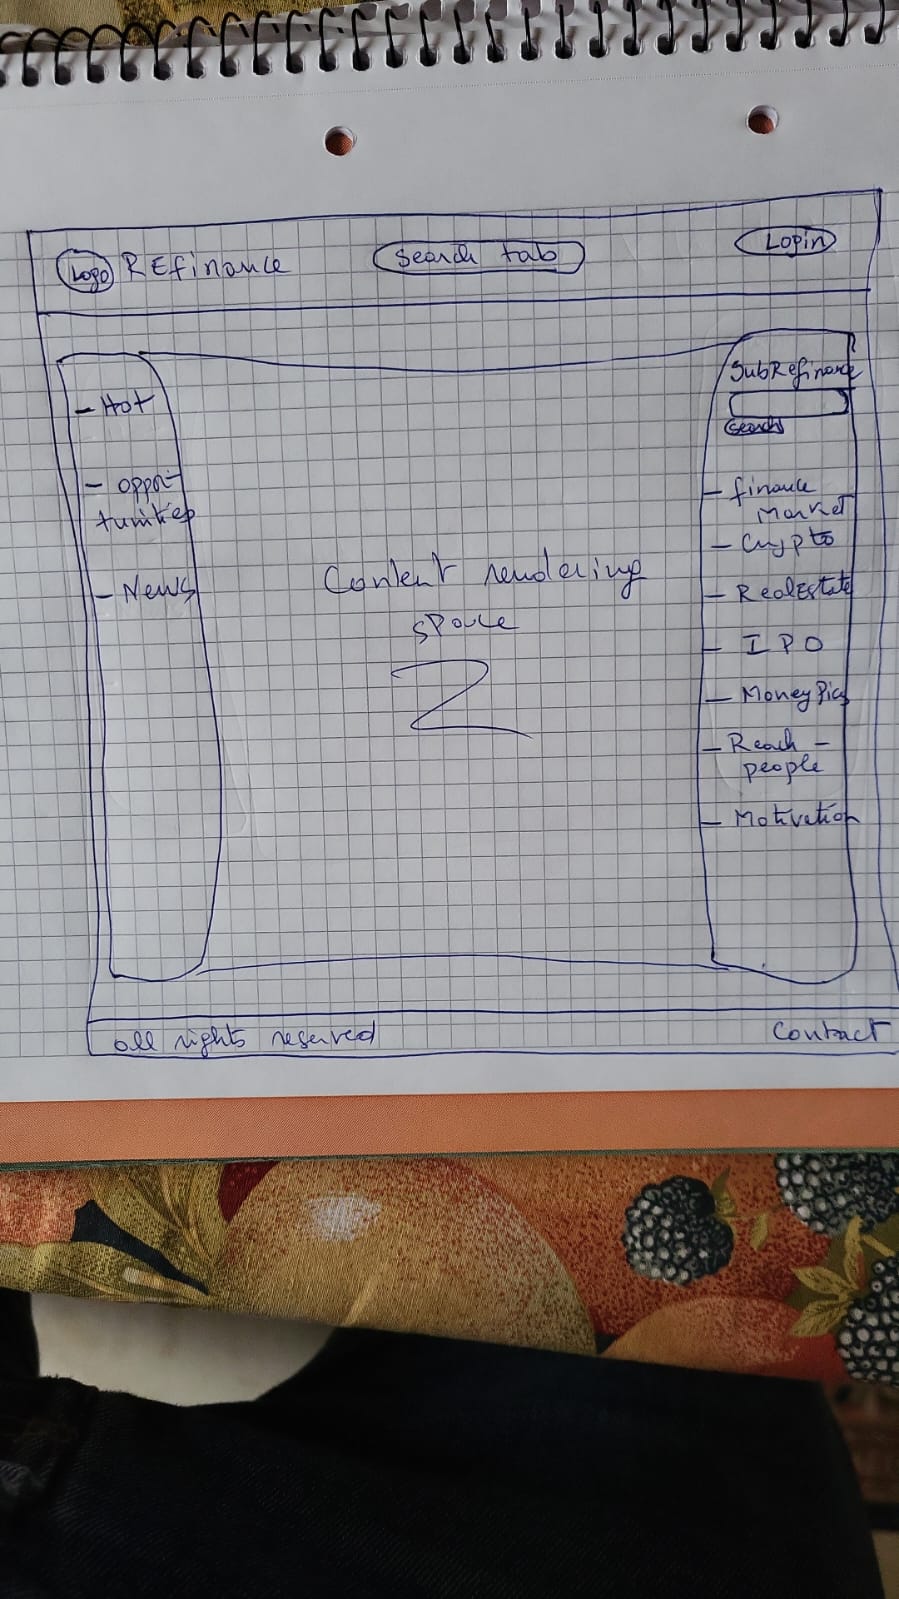 Logo REfinance
Search tab
Login
- Hot
- oppor-
tunities
- News
Content rendering
space
SubRefinance
Search
- finance
Market
- Crypto
- RealEstate
- IPO
- Money
- Reach -
people
- Motivation
all rights reserved
Contact